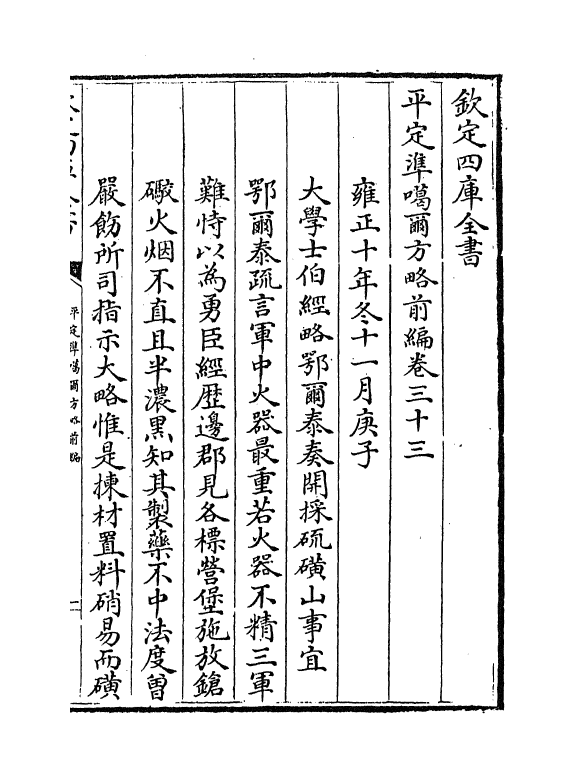 欽定四庫全書
平定準噶爾方略前編卷三十三
雍正十年冬十一月庚子
大學士伯經略鄂爾泰奏開採硫磺山事宜
鄂爾泰疏言軍中火器最重若火器不精三軍
難恃以為勇臣經歴邊郡見各標營堡施放鎗
礮火烟不直且半濃黒知其製藥不中法度曾
嚴飭所司指示大略惟是揀材置料硝易而磺
平定準噶爾方略前編